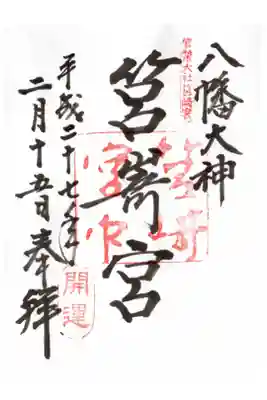 八幡大神
官幣大社筥崎宮
筥崎宮
平成二十七年
二月十五日奉拝
開運